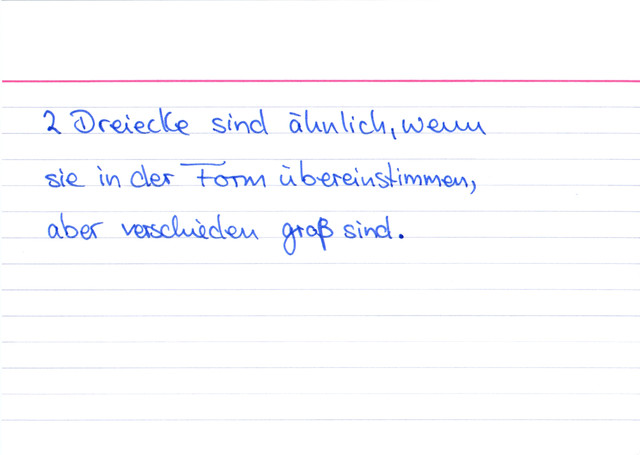 2 Dreiecke sind ähnlich, wenn
sie in der Form übereinstimmen,
aber verschieden groß sind.